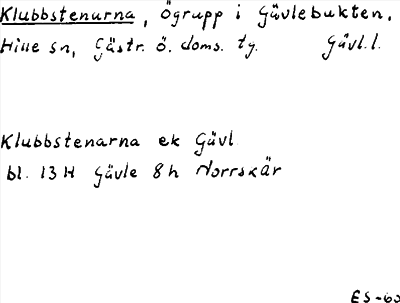 Klubbstenarna, Ögrupp i Gävlebukten.
Hille sn, Gästr. ö. doms. tg. Gävl. l.
Klubbstenarna ek Gävl
bl. 13 H Gävle 8 h Norrskär
ES-63